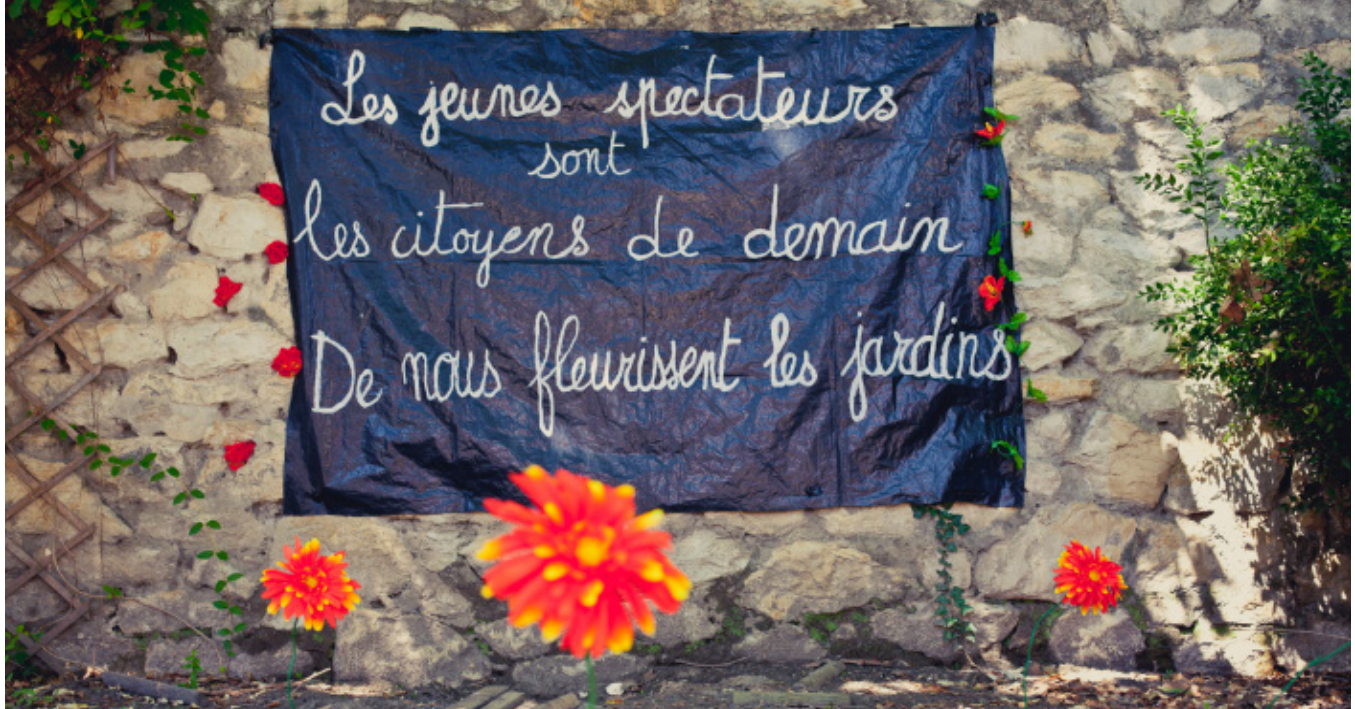 Les jeunes spectateurs
sont
les citoyens de demain
De nous fleurissent les jardins